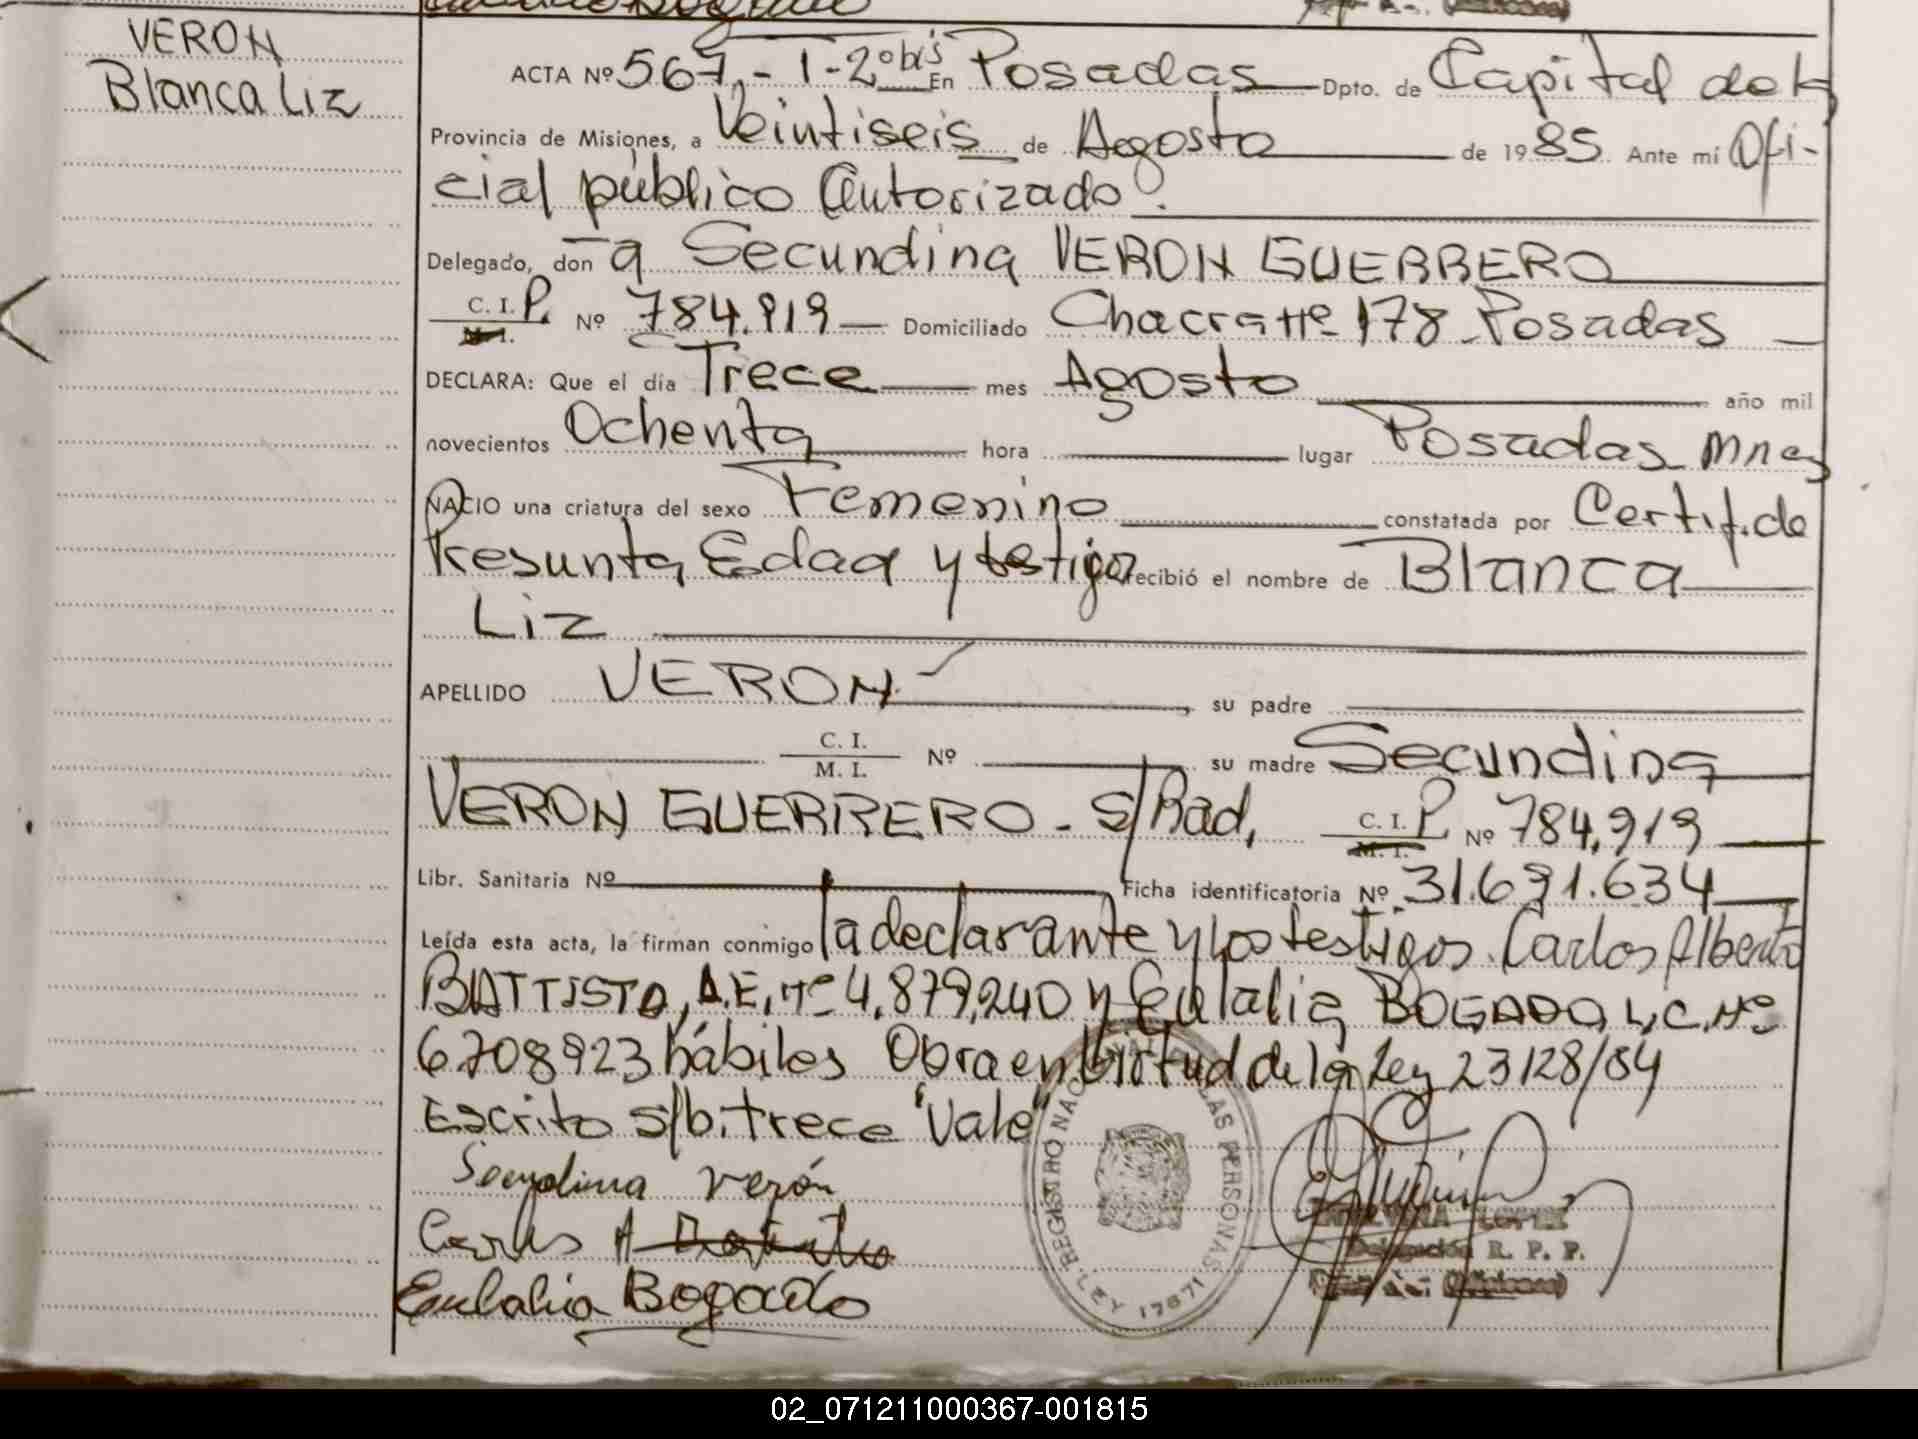 VERON
Blanca Liz
ACTA Nº 567.- T-2º bis En Posadas Dpto. de Capital de la
Provincia de Misiones, a Veintiseis de Agosto de 1985. Ante mí Ofi-
cial público Autorizado.
Delegado, don a Secundina VERON GUERRERO
C. I. P. Nº 784.919 Domiciliado Chacra Nº 178 Posadas
M. I.
DECLARA: Que el día Trece mes Agosto año mil
novecientos Ochenta hora lugar Posadas Mnes
NACIO una criatura del sexo Femenino constatada por Certif. de
Presunta Edad y testigos recibió el nombre de Blanca
Liz
APELLIDO VERON su padre
C. I. Nº su madre Secundina
M. I.
VERON GUERRERO - S/Rad, C. I. P Nº 784,919
M. I.
Libr. Sanitaria Nº Ficha identificatoria Nº 31.691.634
Leída esta acta, la firman conmigo la declarante y los testigos. Carlos Alberto
BATTISTO, D.E. nº 4.879,240 y Eulalia BOGADO, L,C. Nº
6708923 hábiles Obra en Virtud de la Ley 23128/84
Escrito s/b. trece "Vale"
Secundina Verón
Carlos A Battisto
Eulalia Bogado
REGISTRO NACIONAL DE LAS PERSONAS
LEY 17671
Delegación R. P. P.
Posadas (Misiones)
02_071211000367-001815